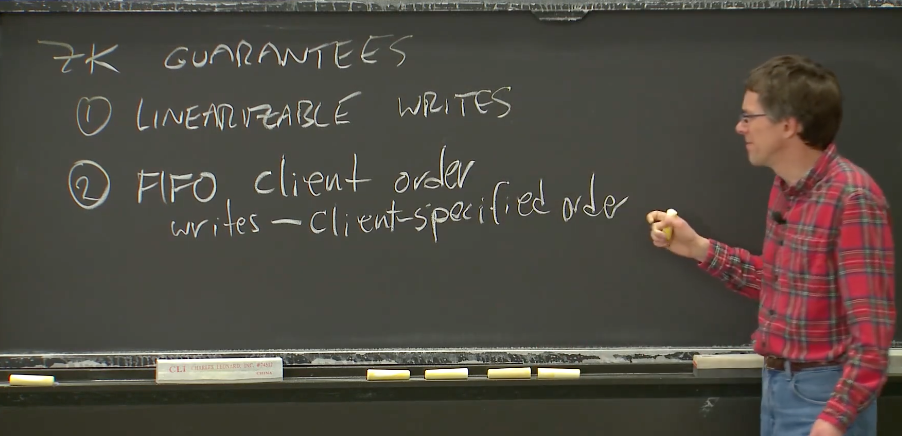 ZK GUARANTEES
① LINEARIZABLE WRITES
② FIFO client order
writes — Client-specified order